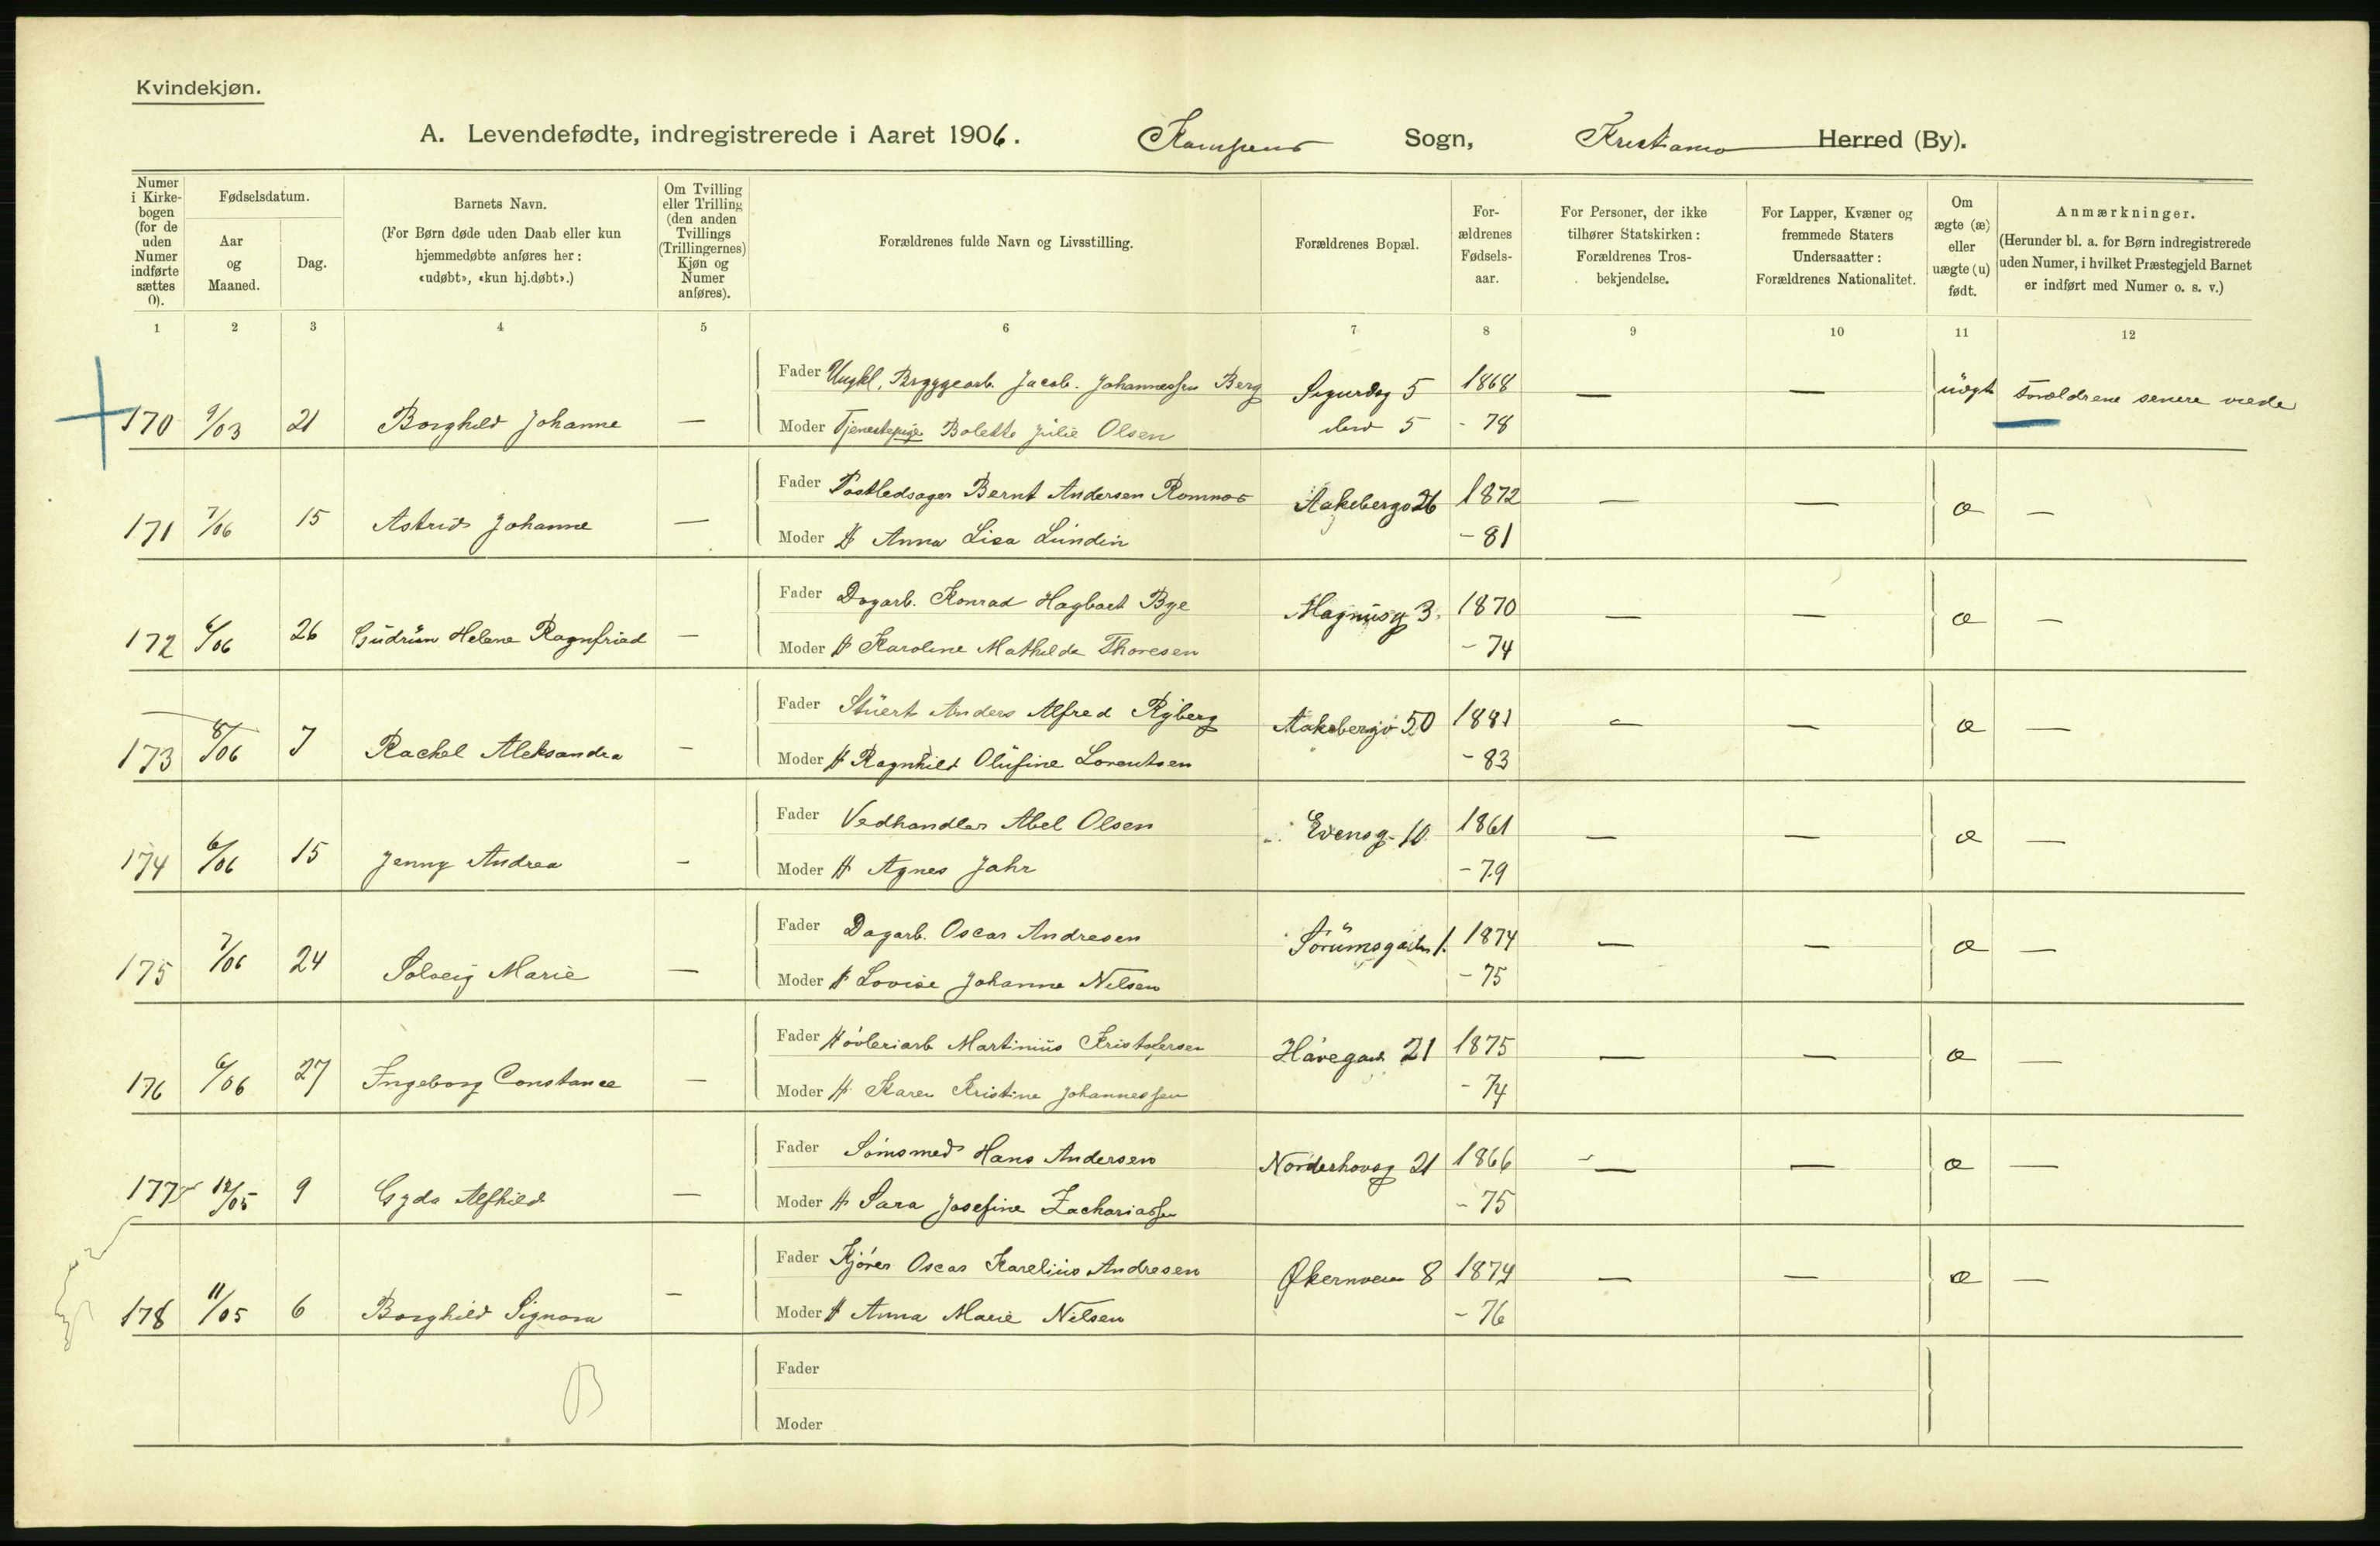 Kvindekjøn.
A. Levendefødte, indregistrerede i Aaret 1906. Kampens Sogn, Kristiania Herred (By).
Numer i Kirkebogen (for de uden Numer indførte sættes 0).
Fødselsdatum.
Aar og Maaned.
Dag.
Barnets Navn.
(For Børn døde uden Daab eller kun hjemmedøbte anføres her: «udøbt», «kun hj.døbt».)
Om Tvilling eller Trilling (den anden Tvillings (Trillingernes) Kjøn og Numer anføres).
Forældrenes fulde Navn og Livsstilling.
Forældrenes Bopæl.
Forældrenes Fødselsaar.
For Personer, der ikke tilhører Statskirken: Forældrenes Trosbekjendelse.
For Lapper, Kvæner og fremmede Staters Undersaatter: Forældrenes Nationalitet.
Om ægte (æ) eller uægte (u) født.
Anmærkninger.
(Herunder bl. a. for Børn indregistrerede uden Numer, i hvilket Præstegjeld Barnet er indført med Numer o. s. v.)
1 2 3 4 5 6 7 8 9 10 11 12
Fader Ungkl. Bryggearb. Jacob Johannessen Berg Sigurdsg 5 1868 — — uægte Forældrene senere viede
170 9/03 21 Borghild Johanne — Moder Tjenestepige Bolette Julie Olsen 5 - 78
Fader Postledsager Bernt Andersen Romnes Aakebergv 26 1872 — — æ —
171 7/06 15 Astrid Johanne — Moder H Anna Lisa Lundin - 81
Fader Dagarb. Konrad Hagbart Bye Magnusg 3. 1870 — — æ —
172 6/06 26 Gudrun Helene Ragnfried — Moder H Karoline Mathilde Thoresen - 74
Fader Stuert Anders Alfred Ryberg Aakebergv 50 1881 — — æ —
173 8/06 7 Rachel Aleksandra — Moder H Ragnhild Olufine Lorentsen - 83
Fader Vedhandler Abel Olsen Evensg. 10. 1861 — — æ —
174 6/06 15 Jenny Andrea — Moder H Agnes Jahr - 79
Fader Dagarb. Oscar Andresen Sørumsgaden 1. 1874 — — æ —
175 7/06 24 Solveig Marie — Moder H Lovise Johanne Nilsen - 75
Fader Høvleriarb Martinius Kristofersen Havegad. 21 1875 — — æ —
176 6/06 27 Ingeborg Constance — Moder H Karen Kristine Johannessen - 74
Fader Sømsmed Hans Andersen Norderhovsg 21 1866 — — æ —
177 12/05 9 Gyda Alfhild — Moder H Sara Josefine Zachariassen - 75
Fader Kjører Oscar Karelius Andresen Økernveien 8 1874 — — æ —
178 11/05 6 Borghild Signora — Moder H Anna Marie Nilsen - 76
Fader
B
Moder